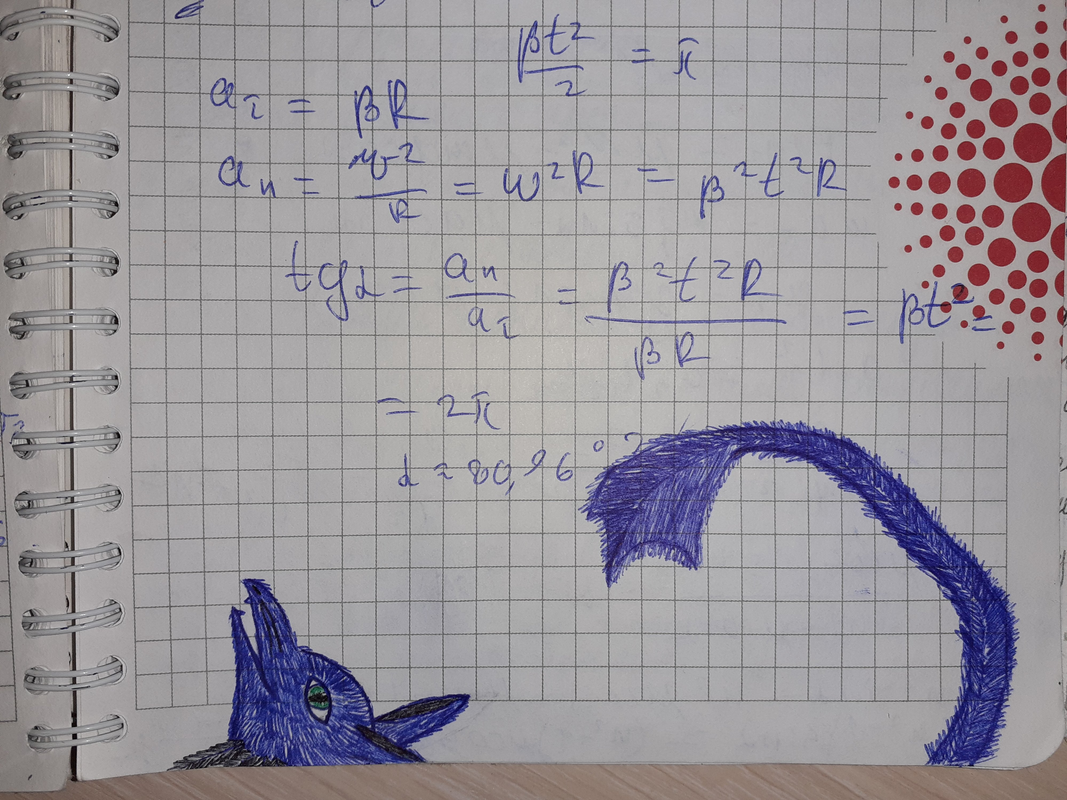 βt²/2 = π
a_τ = βR
a_n = v²/R = ω²R = β²t²R
tgα = a_n/a_τ = β²t²R/βR = βt² =
= 2π
α ≈ 80,96°